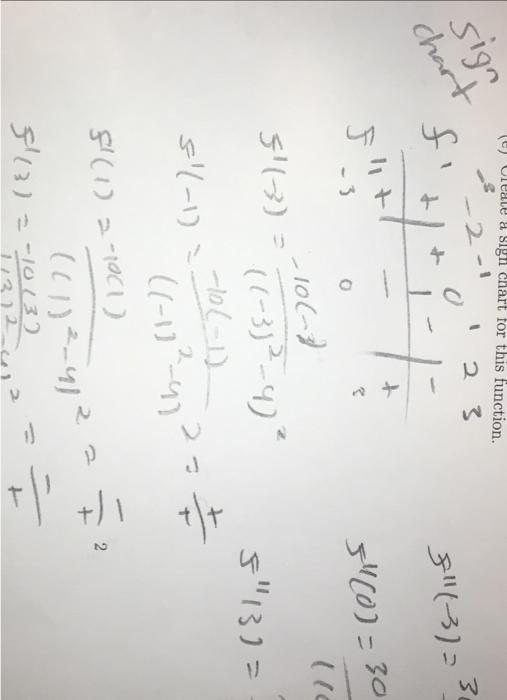 (c) Create a sign chart for this function.
sign
chart
-3 -2 -1 0 1 2 3
f' + | + | - | -
f'' + | - | +
-3 0
f'(-3) = -10(-3)
((-3)²-4)²
f'(-1) = -10(-1)
((-1)²-4)² = +/+
f'(1) = -10(1)
((1)²-4)² = -/+
f'(3) = -10(3)
((3)²-4)² = -/+
2
f''(-3) = 3
f''(0) = 30
f''(3) =